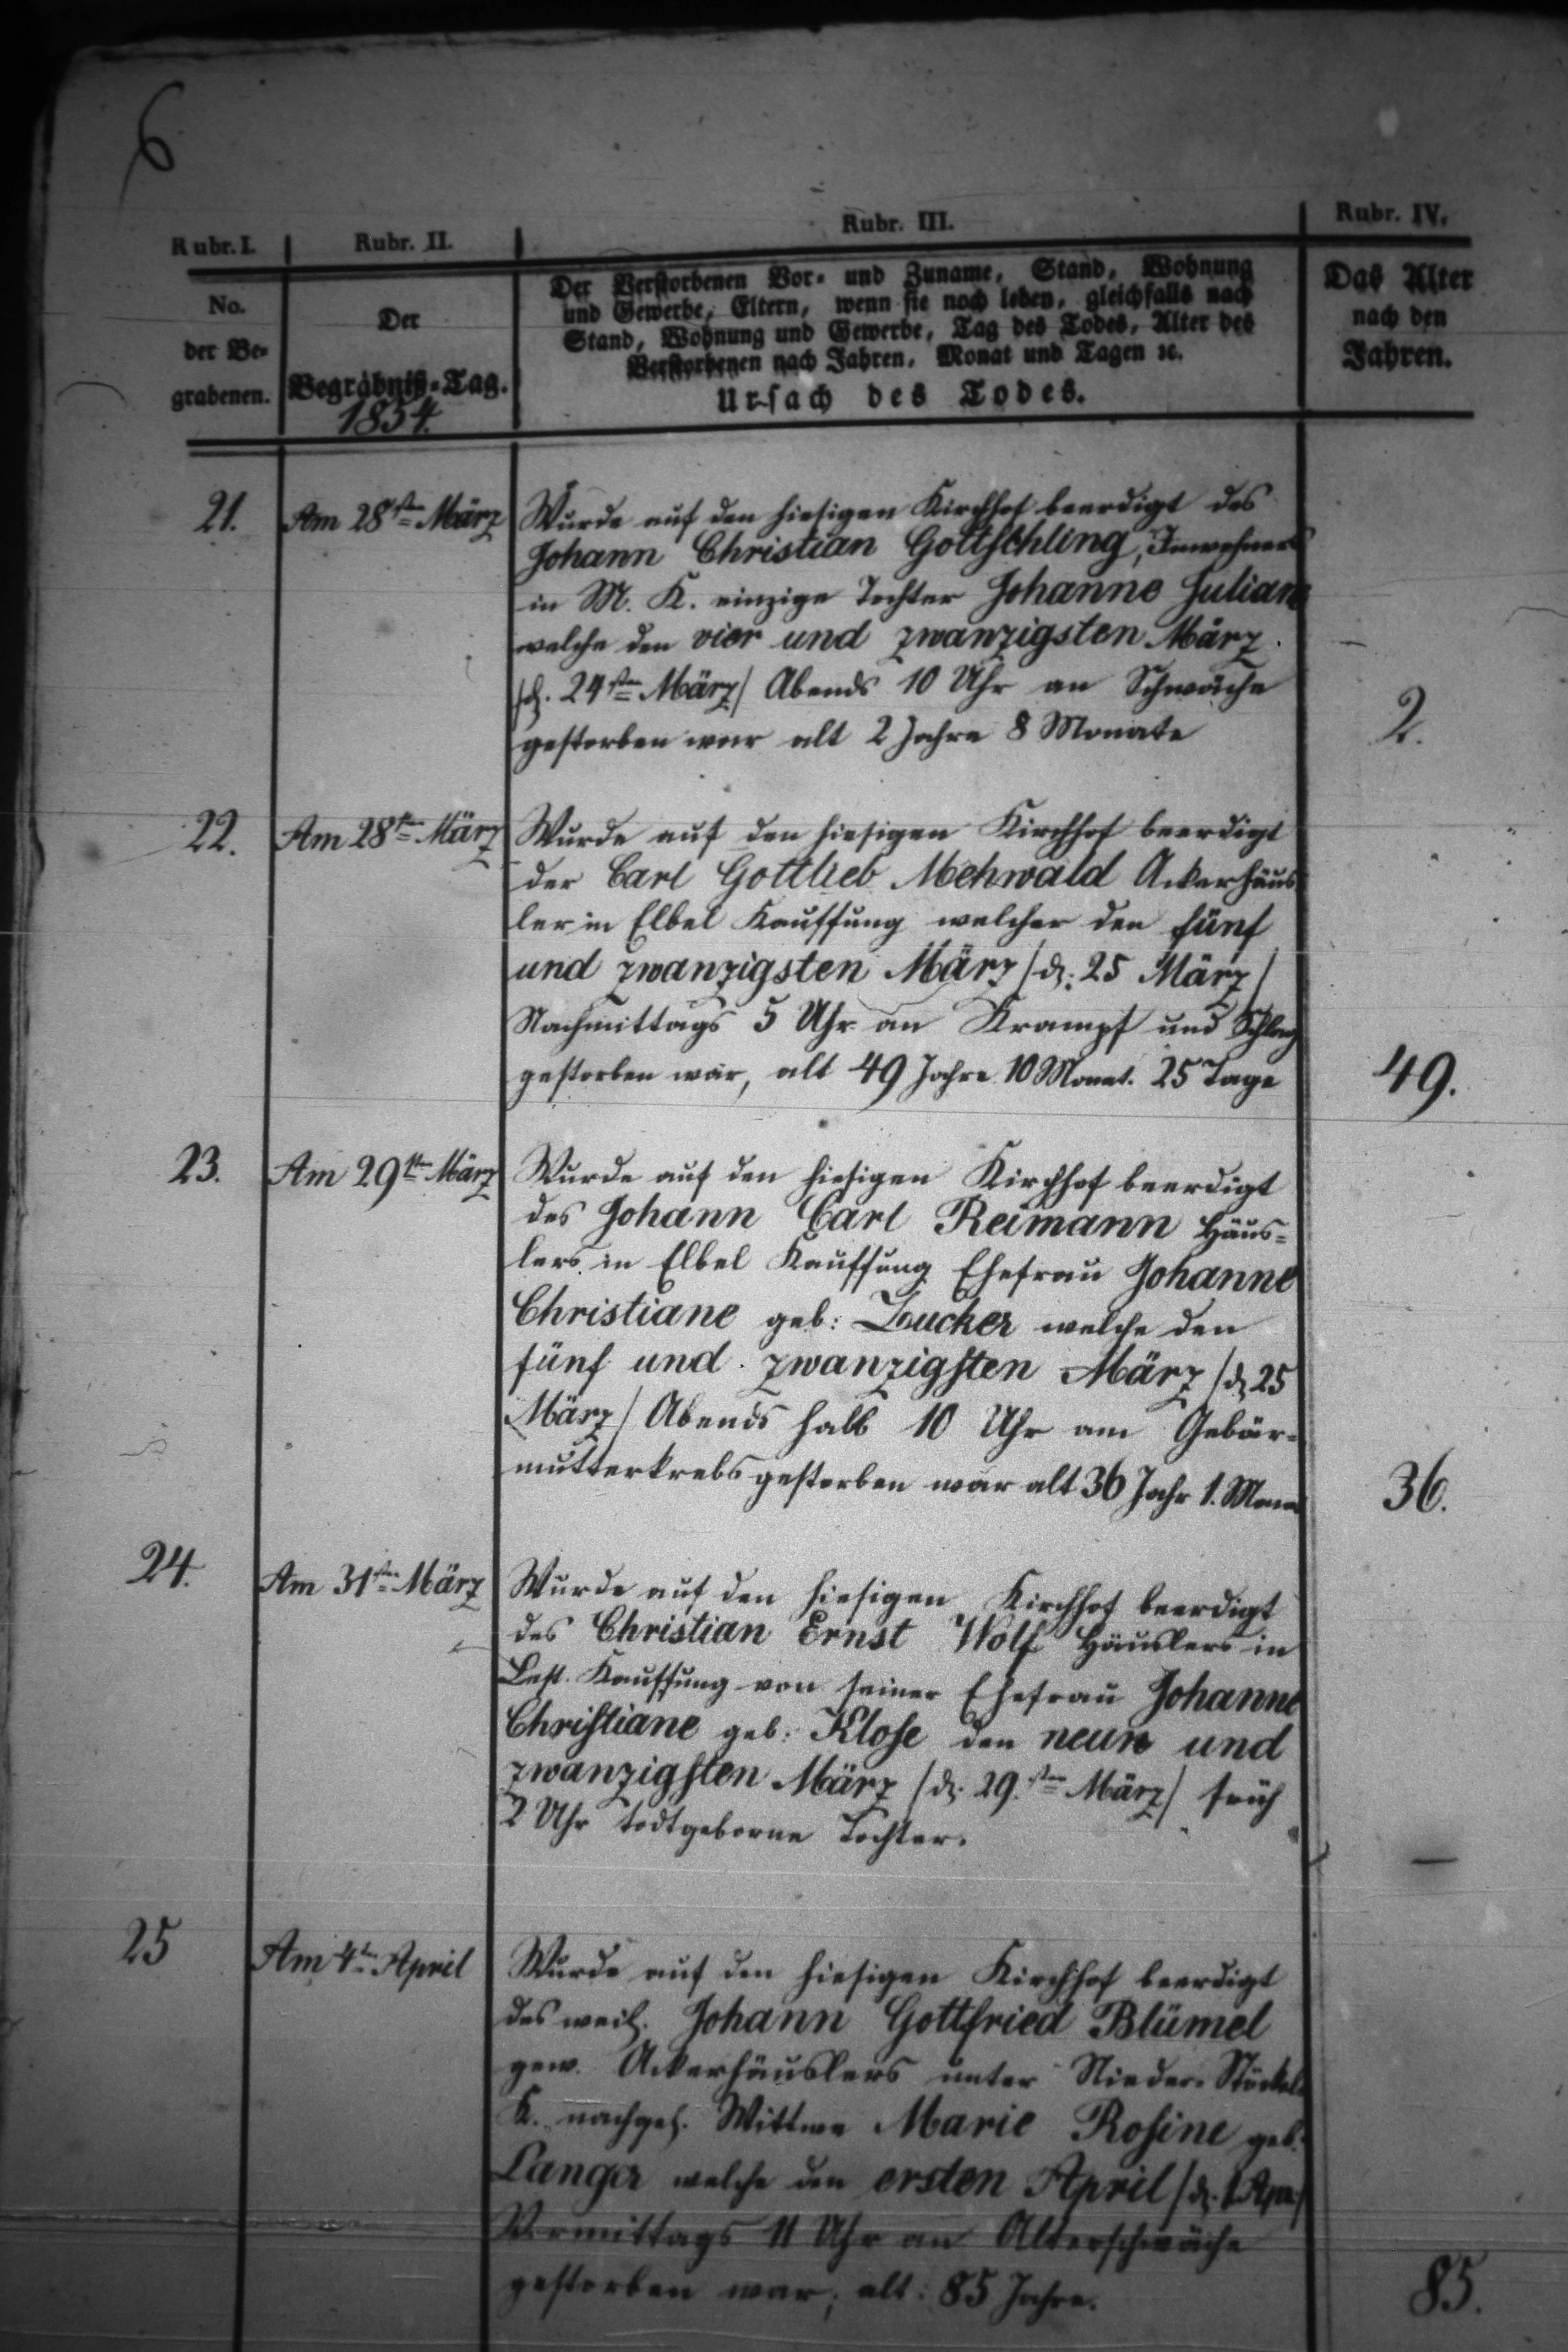 6
Rubr. I. Rubr. II. Rubr. III. Rubr. IV.
No.
der Be-
grabenen.
Der
Begräbniß-Tag.
1854.
Der Verstorbenen Vor- und Zuname, Stand, Wohnung
und Gewerbe, Eltern, wenn sie noch leben, gleichfalls nach
Stand, Wohnung und Gewerbe, Tag des Todes, Alter des
Verstorbenen nach Jahren, Monat und Tagen ꝛc.
Ursach des Todes.
Das Alter
nach den
Jahren.
21. Am 28sten März Wurde auf den hiesigen Kirchhof beerdigt des
Johann Christian Gottschling, Inwohners
in M. K. einzige Tochter Johanne Juliane
welche den vier und zwanzigsten März
/d. 24sten März/ Abends 10 Uhr an Schwäche
gestorben war alt 2 Jahre 8 Monate 2.
22. Am 28sten März Wurde auf den hiesigen Kirchhof beerdigt
der Carl Gottlieb Mehwald Ackerhäus
ler in Elbel Kauffung welcher den fünf
und zwanzigsten März /d. 25 März/
Nachmittags 5 Uhr an Krampf und Schlag
gestorben war, alt 49 Jahre 10 Monat. 25 Tage 49.
23. Am 29sten März Wurde auf den hiesigen Kirchhof beerdigt
des Johann Carl Reimann Häus-
lers in Elbel Kauffung Ehefrau Johanne
Christiane geb: Zucker welche den
fünf und zwanzigsten März /d 25
März/ Abends halb 10 Uhr am Gebär-
mutterkrebs gestorben war alt 36 Jahr 1. Mona 36.
24. Am 31sten März Wurde auf den hiesigen Kirchhof beerdigt
des Christian Ernst Wolf Häuslers in
Lest. Kauffung von seiner Ehefrau Johanne
Christiane geb: Klose den neun und
zwanzigsten März /d. 29.sten März/ früh
2 Uhr todtgeborne Tochter. —
25 Am 4ten April Wurde auf den hiesigen Kirchhof beerdigt
des weil. Johann Gottfried Blümel
gew. Ackerhäuslers unter Nieder-Stöckel
K. nachgel. Wittwe Marie Rosine geb.
Langer welche den ersten April /d. 1. Apr/
Vormittags 11 Uhr an Altersschwäche
gestorben war; alt: 85 Jahre. 85.